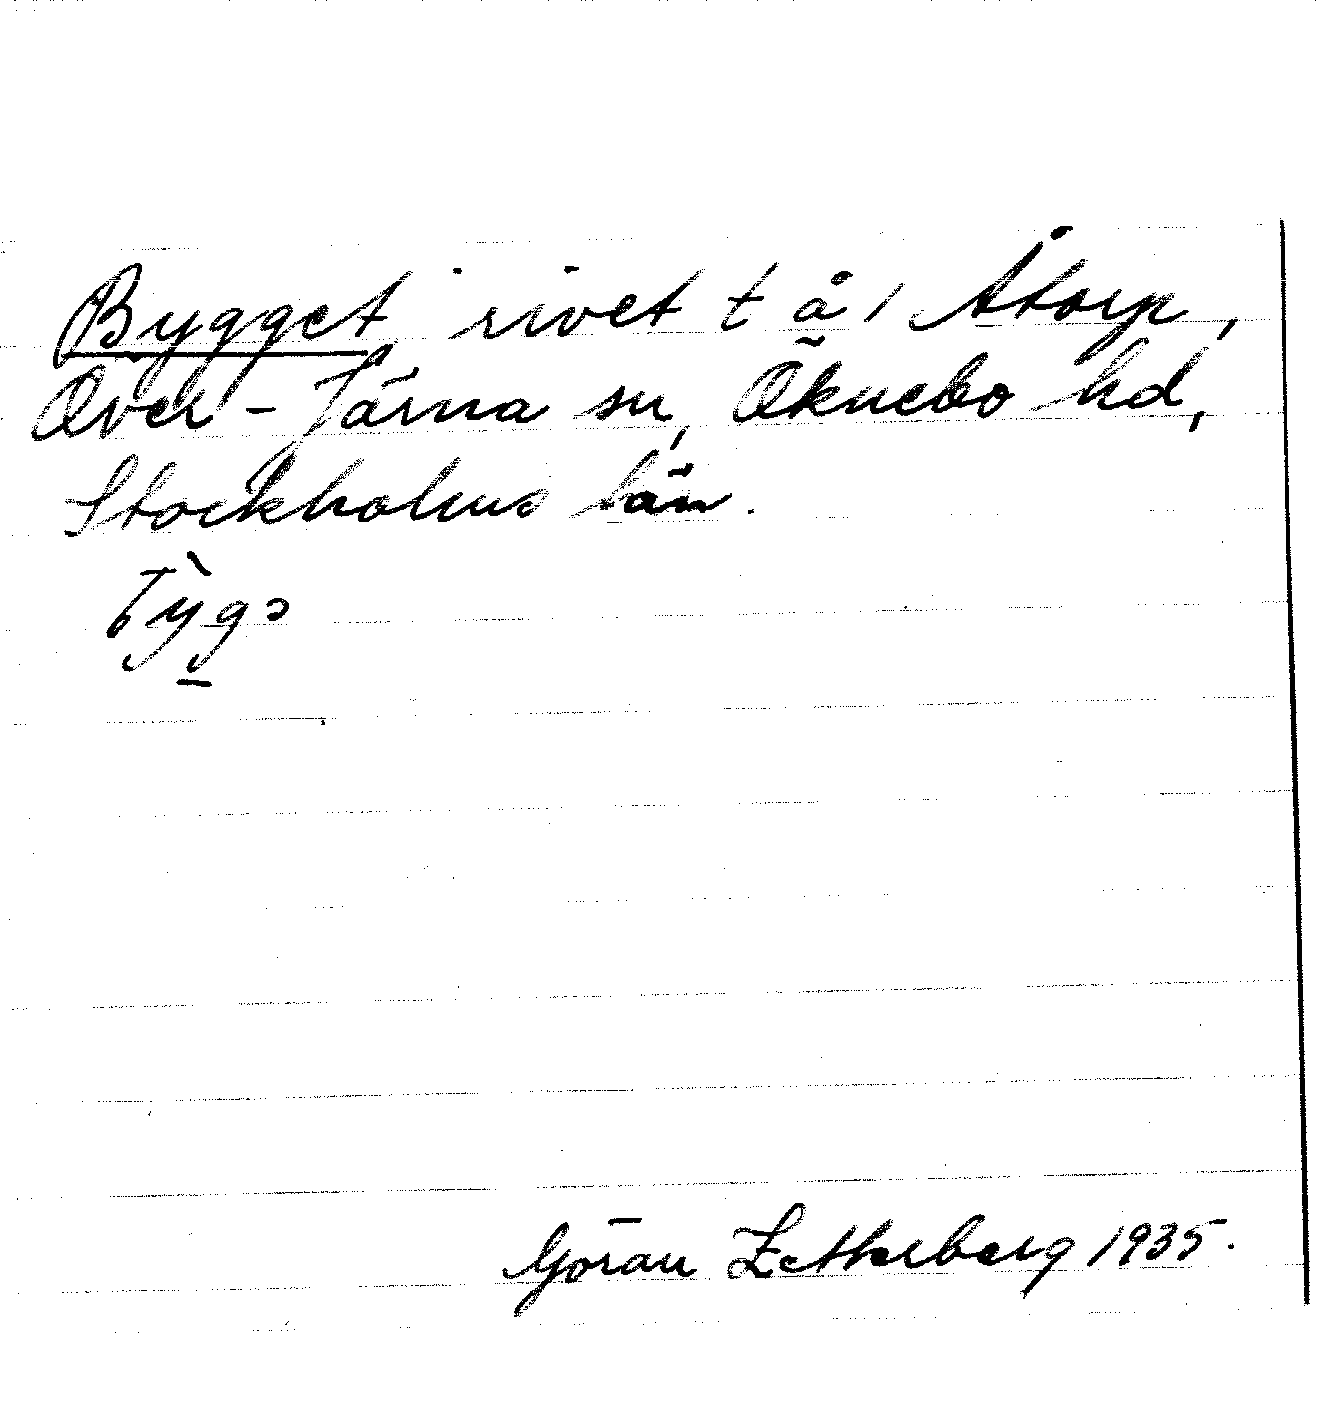 Bygget rivet t å / Åtorp,
Över-Järna sn, Öknebo hd,
Stockholms län.
Tỳgə
Göran Zetterberg 1935.